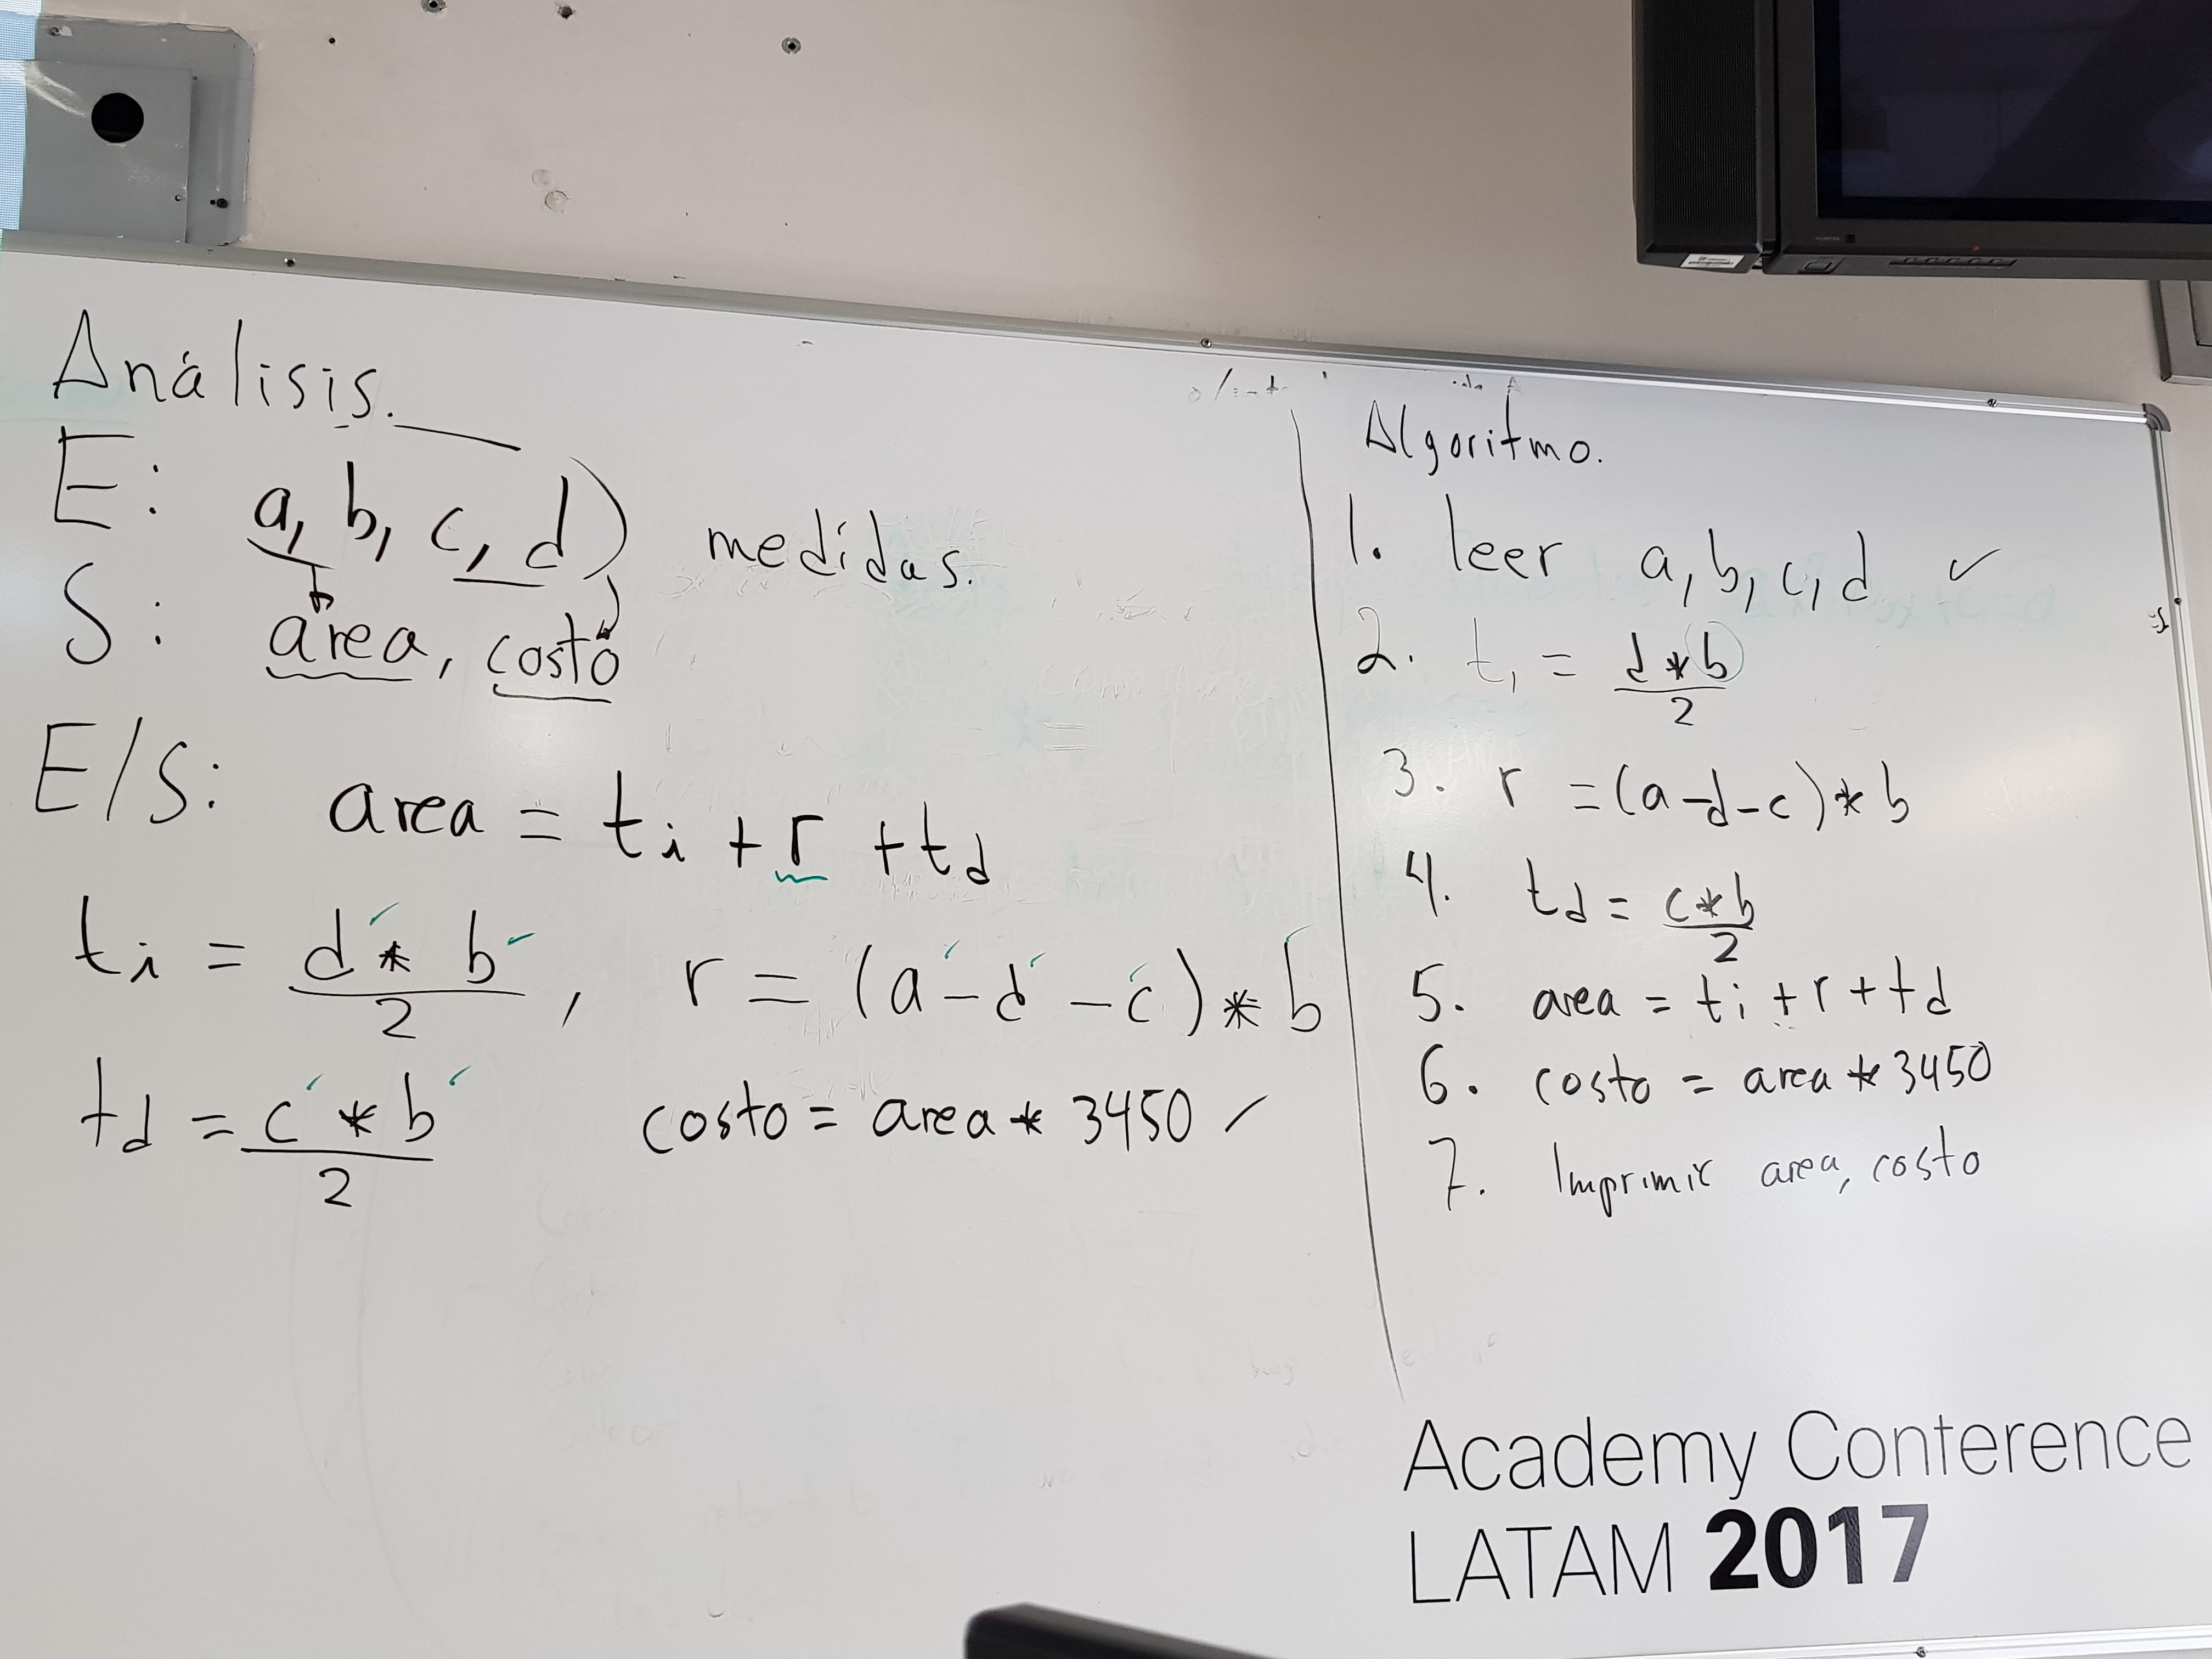 Análisis.
E: a, b, c, d) medidas.
S: area, costo
E/S: area = ti + r + td
ti = d * b / 2, r = (a - d - c) * b
td = c * b / 2 costo = area * 3450
Algoritmo.
1. leer a, b, c, d ✓
2. ti = d * b / 2
3. r = (a-d-c) * b
4. td = c * b / 2
5. area = ti + r + td
6. costo = area * 3450
7. Imprimir area, costo
Academy Conference
LATAM 2017